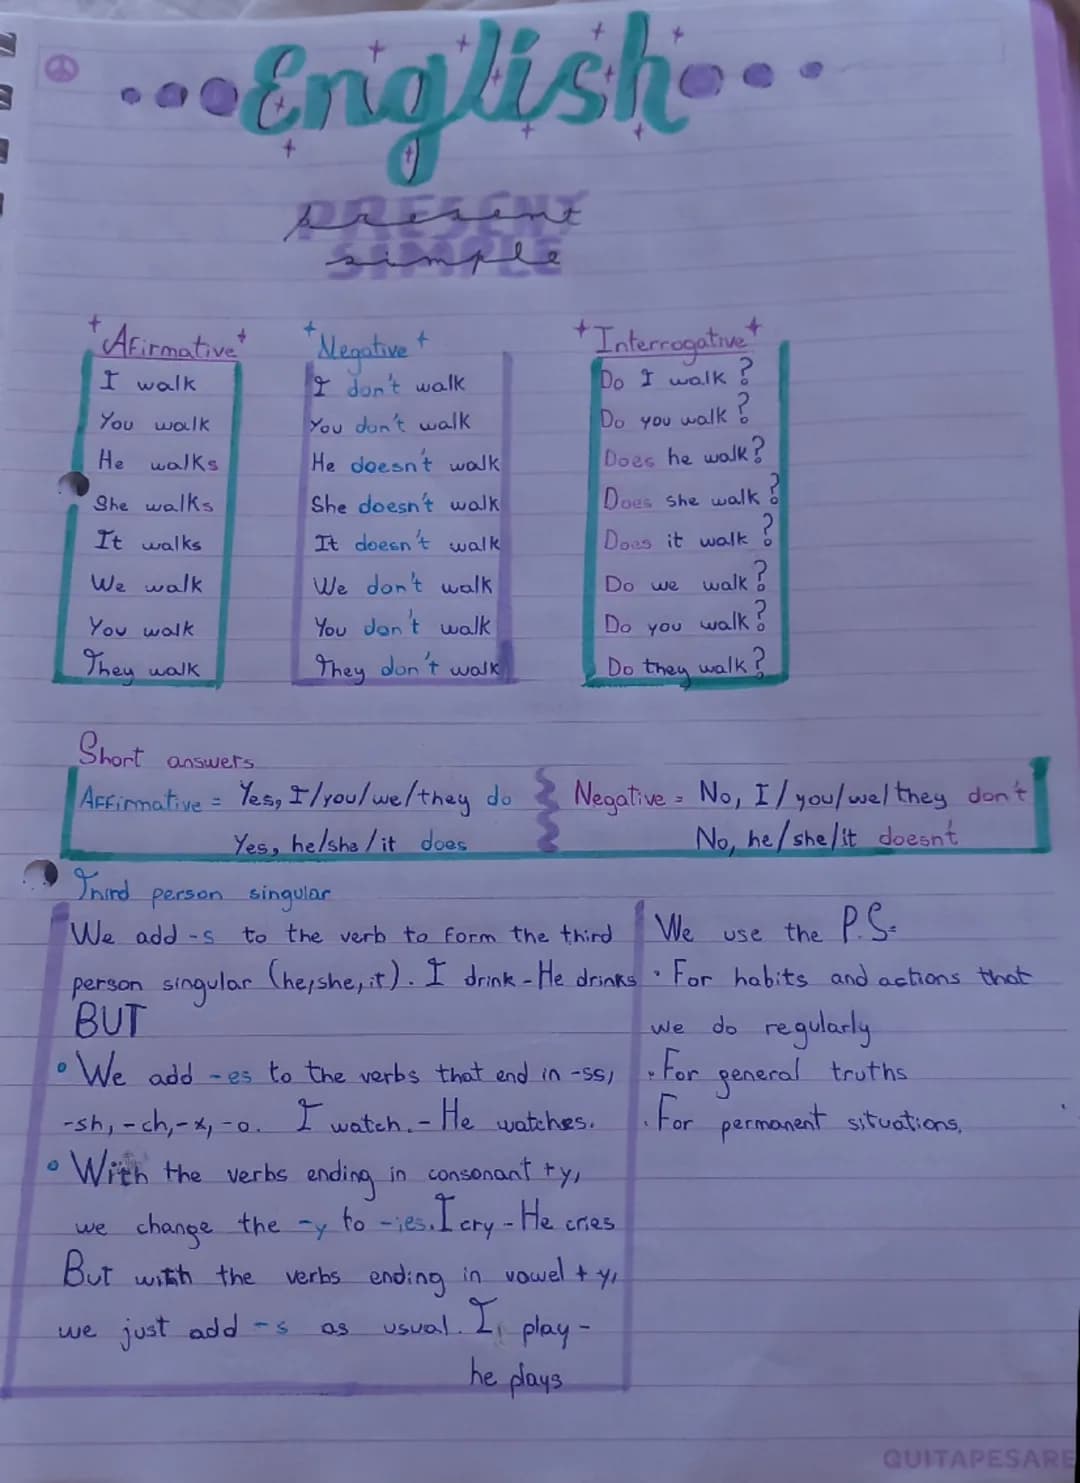 English
PRESENT
present
SIMPLE
simple
Afirmative
I walk
You walk
He walks
She walks
It walks
We walk
You walk
They walk
Negative
I don't walk
You don't walk
He doesn't walk
She doesn't walk
It doesn't walk
We don't walk
You don't walk
They don't walk
Interrogative
Do I walk?
Do you walk?
Does he walk?
Does she walk?
Does it walk?
Do we walk?
Do you walk?
Do they walk?
Short answers
Affirmative = Yes, I/you/we/they do
Yes, he/she/it does
Negative = No, I/you/we/they don't
No, he/she/it doesn't
Third person singular
We add -s to the verb to form the third
person singular (he,she,it). I drink - He drinks
BUT
• We add -es to the verbs that end in -ss,
-sh, -ch, -x, -o. I watch. - He watches.
• With the verbs ending in consonant +y,
we change the -y to -ies. I cry - He cries
But with the verbs ending in vowel + y,
we just add -s as usual. I play -
he plays
We use the P.S=
• For habits and actions that
we do regularly
• For general truths
• For permanent situations.
QUITAPESARE